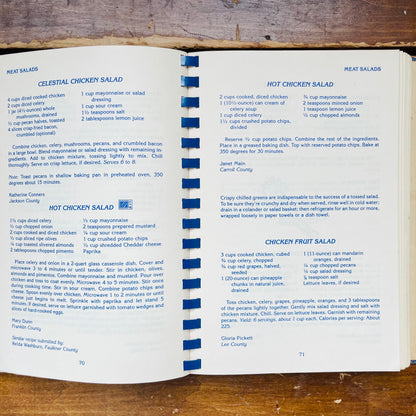 MEAT SALADS
CELESTIAL CHICKEN SALAD
4 cups diced cooked chicken
2 cups diced celery
1 jar (4½-ounces) whole
mushrooms, drained
½ cup pecan halves, toasted
4 slices crisp-fried bacon,
crumbled (optional)
1 cup mayonnaise or salad
dressing
1 cup sour cream
1½ teaspoons salt
2 tablespoons lemon juice
Combine chicken, celery, mushrooms, pecans, and crumbled bacon
in a large bowl. Blend mayonnaise or salad dressing with remaining in-
gredients. Add to chicken mixture, tossing lightly to mix. Chill
thoroughly. Serve on crisp lettuce, if desired. Serves 6 to 8.
Note: Toast pecans in shallow baking pan in preheated oven, 350
degrees about 15 minutes.
Katherine Conners
Jackson County
HOT CHICKEN SALAD
1½ cups diced celery
½ cup chopped onion
2 cups diced cooked chicken
½ cup sliced ripe olives
¼ cup toasted slivered almonds
2 tablespoons chopped pimento
½ cup mayonnaise
2 teaspoons prepared mustard
¼ cup sour cream
1 cup crushed potato chips
½ cup shredded Cheddar cheese
Paprika
Place celery and onion in a 2-quart glass casserole dish. Cover and
microwave 3 to 4 minutes or until tender. Stir in chicken, olives,
almonds and pimento. Combine mayonnaise and mustard. Pour over
chicken and toss to coat evenly. Microwave 4 to 5 minutes. Stir once
during cooking time. Stir in sour cream. Combine potato chips and
cheese. Spoon evenly over chicken. Microwave 1 to 2 minutes or until
cheese just begins to melt. Sprinkle with paprika and let stand 5
minutes. If desired, serve on lettuce garnished with tomato wedges and
slices of hard-cooked eggs.
Mary Dunn
Franklin County
Similar recipe submitted by:
Relda Washburn, Faulkner County
70
MEAT SALADS
HOT CHICKEN SALAD
2 cups cooked, diced chicken
1 (10½-ounce) can cream of
celery soup
1 cup diced celery
1½ cup crushed potato chips,
divided
¾ cup mayonnaise
2 teaspoons minced onion
1 teaspoon lemon juice
½ cup chopped almonds
Reserve ½ cup potato chips. Combine the rest of the ingredients.
Place in a greased baking dish. Top with reserved potato chips. Bake at
350 degrees for 30 minutes.
Janet Main
Carroll County
Crispy chilled greens are indispensable to the success of a tossed salad.
To be sure they're crunchy and cold when served, rinse well in cold water;
drain in a colander or salad basket; then refrigerate for an hour or more,
wrapped loosely in paper towels or a dish towel.
CHICKEN FRUIT SALAD
3 cups cooked chicken, cubed
¾ cup celery, chopped
¾ cup red grapes, halved,
seeded
1 (20-ounce) can pineapple
chunks in natural juice,
drained
1 (11-ounce) can mandarin
oranges, drained
¼ cup chopped pecans
¼ cup salad dressing
⅛ teaspoon salt
Lettuce leaves, if desired
Toss chicken, celery, grapes, pineapple, oranges, and 3 tablespoons
of the pecans lightly together. Gently mix salad dressing and salt with
chicken mixture. Chill. Serve on lettuce leaves. Garnish with remaining
pecans. Yield: 6 servings, about 1 cup each. Calories per serving: About
225.
Gloria Pickett
Lee County
71